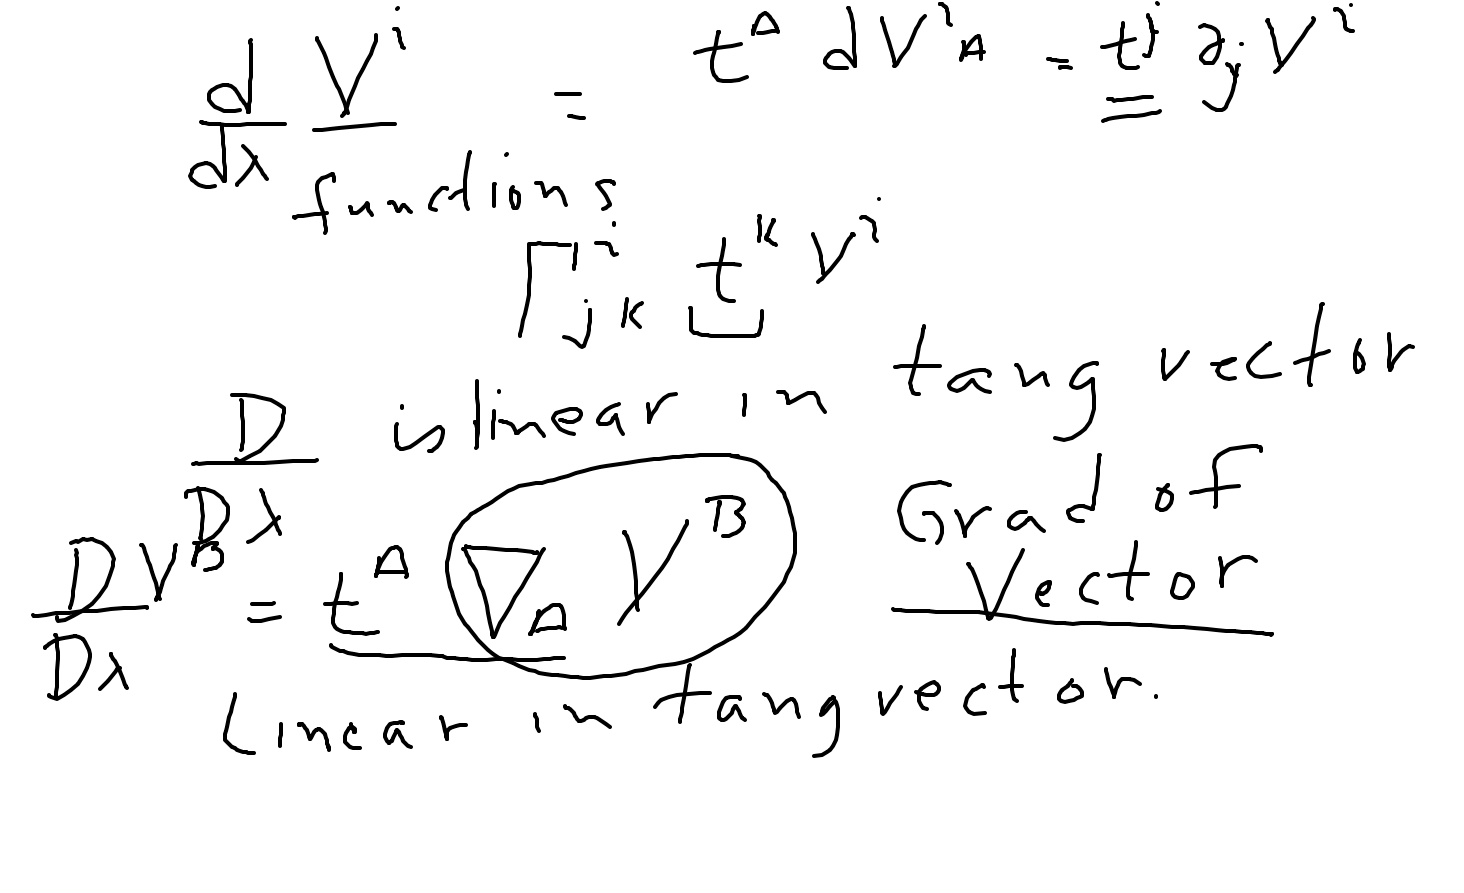 d/dλ V^i = t^A dV^i_A = t^j ∂_j V^i
functions
Γ^i_{jk} t^k V^i
D/Dλ is linear in tang vector
DV^B/Dλ = t^A ∇_A V^B Grad of Vector
Linear in tang vector.